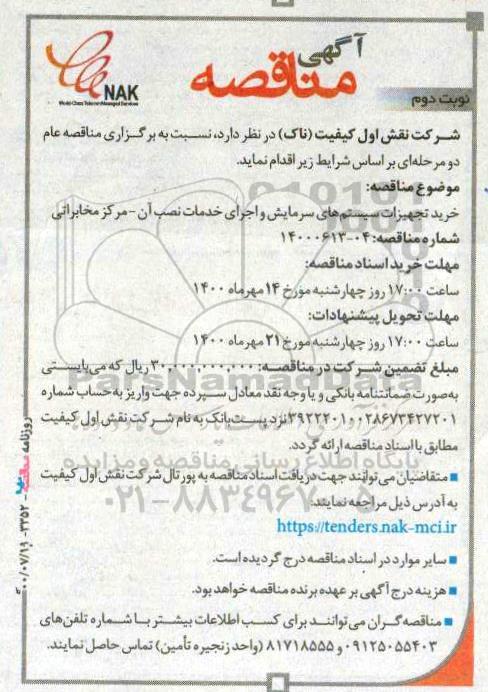 آگهی
مناقصه
NAK
World Class Telecom Managed Services
نوبت دوم
شرکت نقش اول کیفیت (ناک) در نظر دارد، نسبت به برگزاری مناقصه عام
دو مرحله‌ای بر اساس شرایط زیر اقدام نماید.
موضوع مناقصه:
خرید تجهیزات سیستم‌های سرمایش و اجرای خدمات نصب آن - مرکز مخابراتی
شماره مناقصه: ۰۴-۱۴۰۰۰۶۱۳
مهلت خرید اسناد مناقصه:
ساعت ۱۷:۰۰ روز چهارشنبه مورخ ۱۴ مهرماه ۱۴۰۰
مهلت تحویل پیشنهادات:
ساعت ۱۷:۰۰ روز چهارشنبه مورخ ۲۱ مهرماه ۱۴۰۰
مبلغ تضمین شرکت در مناقصه: ۳۰,۰۰۰,۰۰۰,۰۰۰ ریال که می‌بایستی
به‌صورت ضمانتنامه بانکی و یا وجه نقد معادل سپرده جهت واریز به حساب شماره
۰۲۸۶۷۳۴۲۷۲۰۱ و ۳۹۲۲۲۰۱ نزد پست‌بانک به نام شرکت نقش اول کیفیت
مطابق با اسناد مناقصه ارائه گردد.
■ متقاضیان می‌توانند جهت دریافت اسناد مناقصه به پورتال شرکت نقش اول کیفیت
به آدرس ذیل مراجعه نمایند:
https://tenders.nak-mci.ir
■ سایر موارد در اسناد مناقصه درج گردیده است.
■ هزینه درج آگهی بر عهده برنده مناقصه خواهد بود.
■ مناقصه‌گران می‌توانند برای کسب اطلاعات بیشتر با شماره تلفن‌های
۰۹۱۲۵۰۵۵۴۰۳ و ۸۱۷۱۸۵۵۵ (واحد زنجیره تأمین) تماس حاصل نمایند.
ParsNamadData
پایگاه اطلاع رسانی مناقصه و مزایده
۰۲۱-۸۸۳۴۹۶۷۰
روزنامه مناقصه - ۳۳۵۲